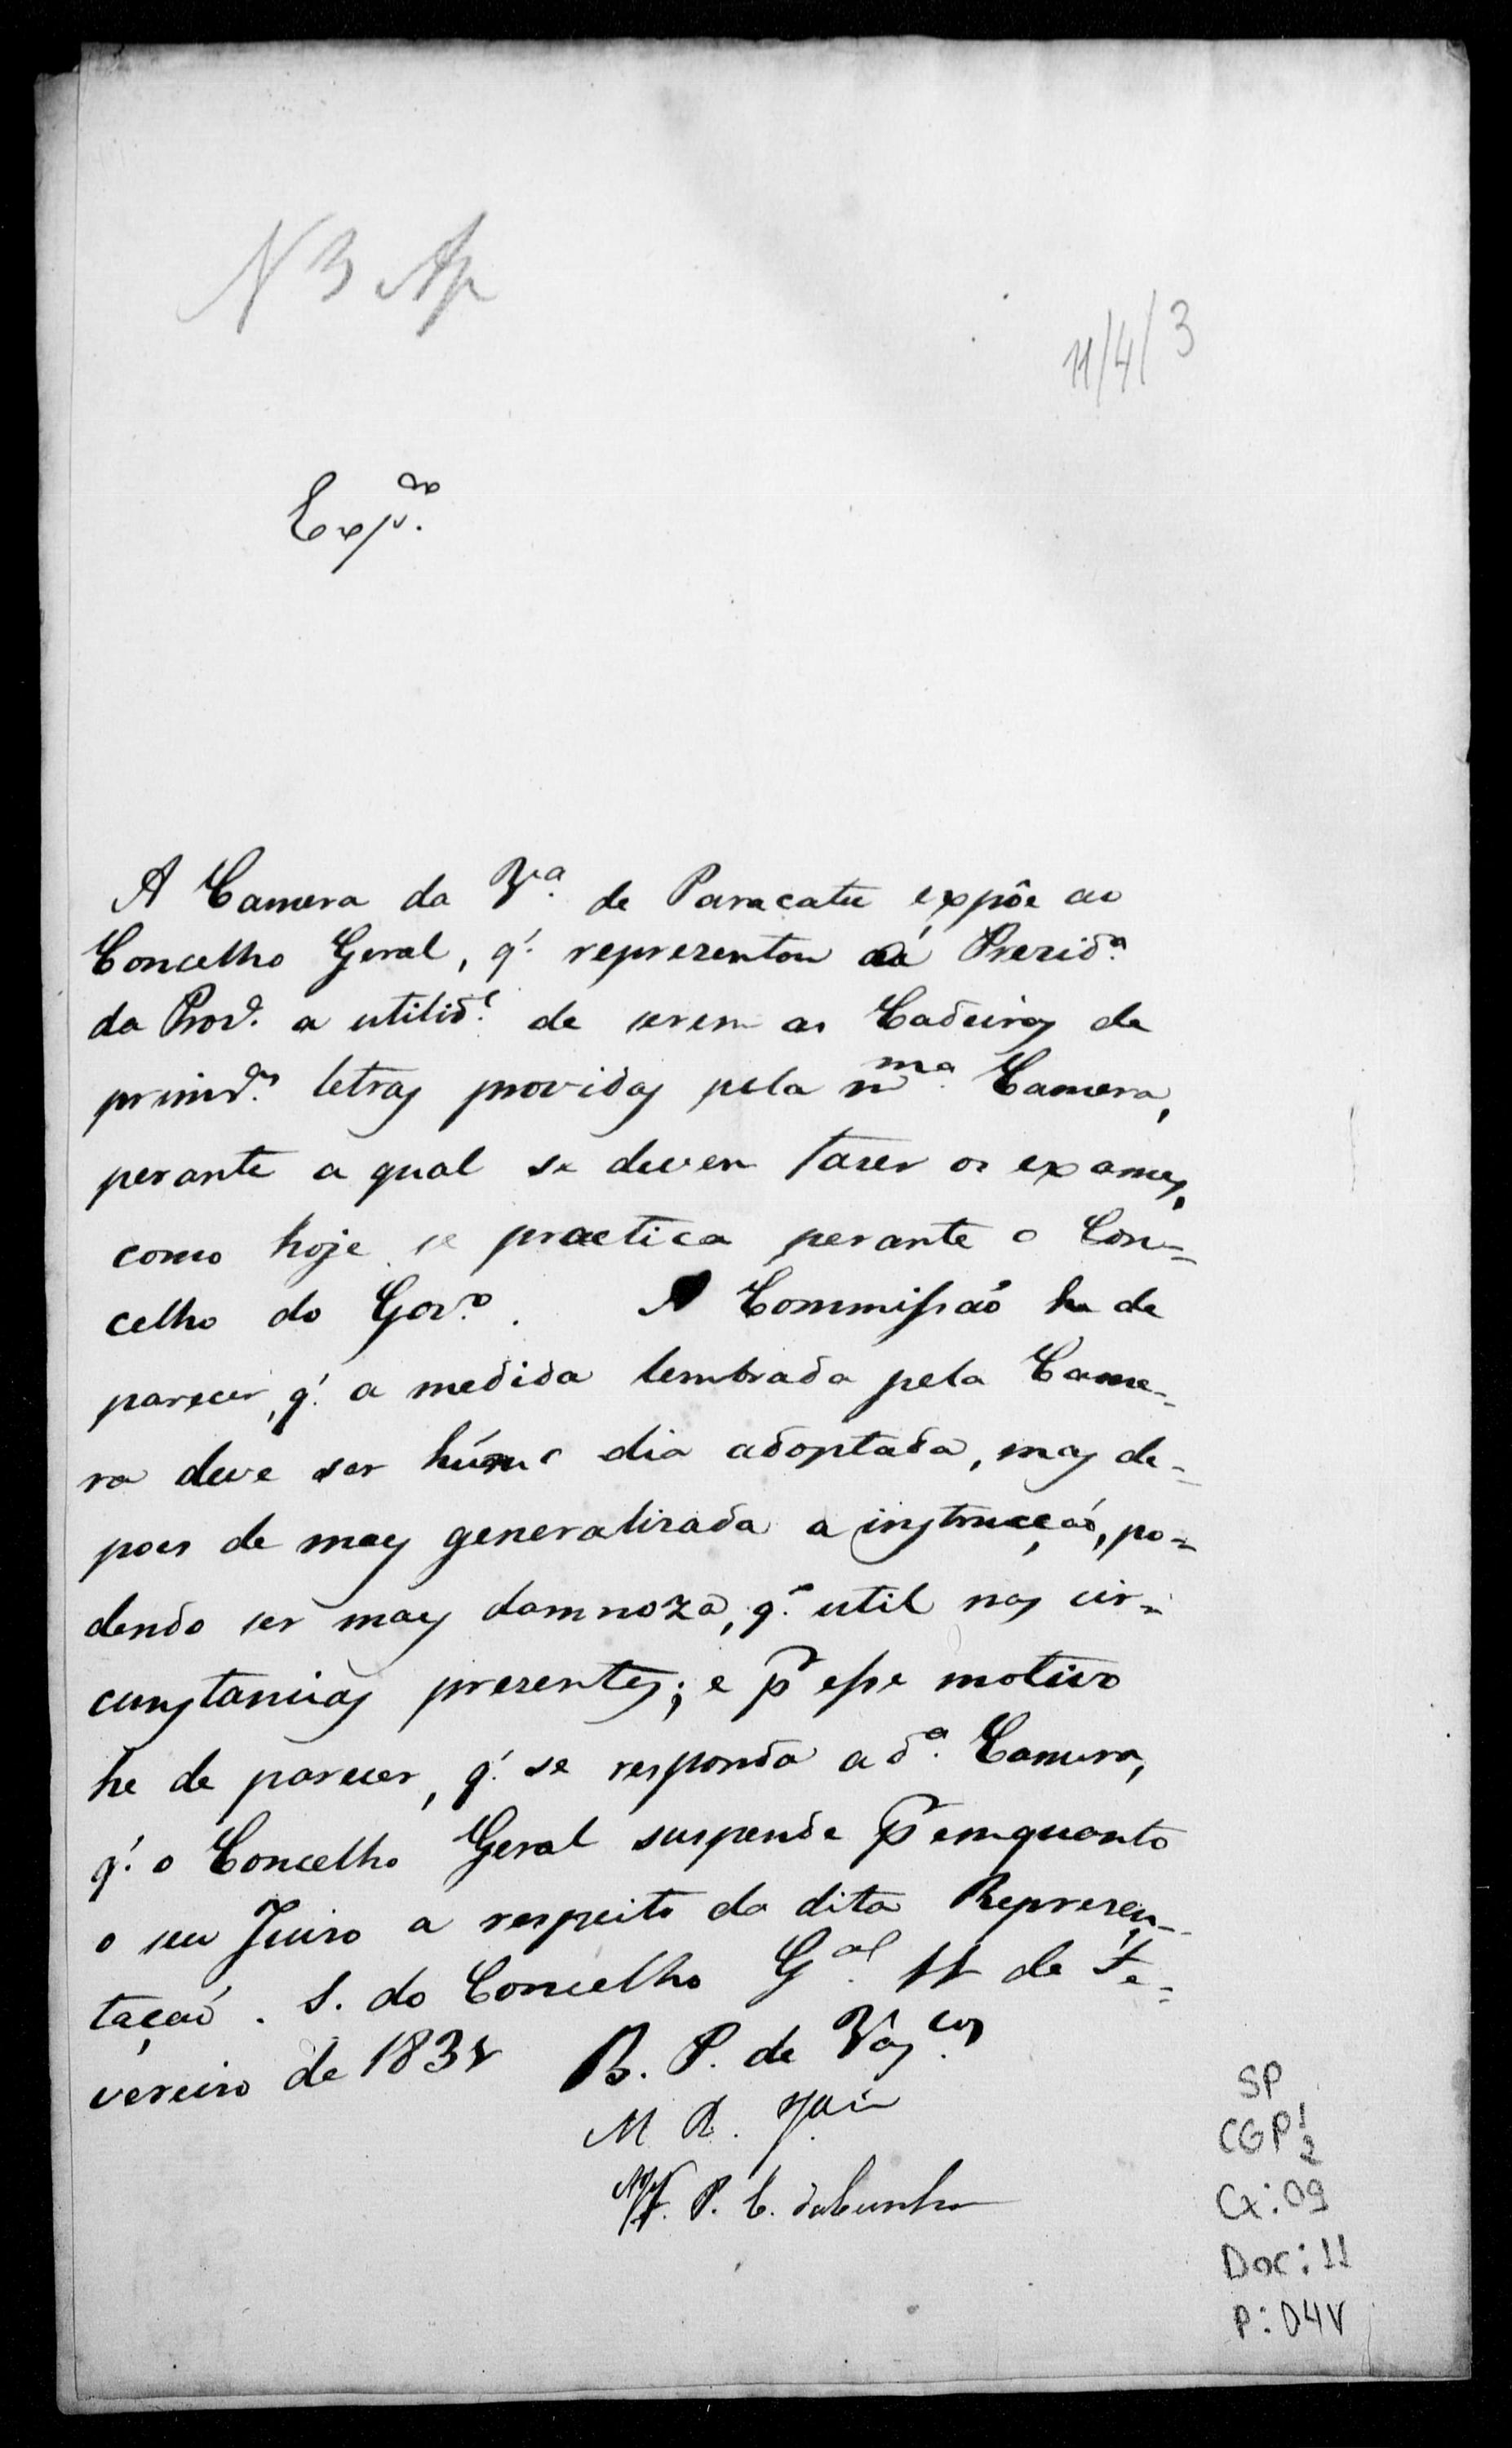 N 3 Ap
11/4/3
Exp.do
A Camera da Va. de Paracatu expôe ao
Concelho Geral, q'. reprezentou aá Prezida.
da Prov.a a utilid.e de serem as Cadeiras de
primr.as letras providas pela mma. Camera,
perante a qual se devem fazer os exames,
como hoje se practica perante o Con=
celho do Gov.o. A Commissaõ he de
parecer, q'. a medida lembrada pela Came=
ra deve ser hum dia adoptada, mas de=
pois de mais generalizada a instrucçaõ, po=
dendo ser mais damnoza, q'. util nas cir=
cunstancias presentes; e pr. esse motivo
he de parecer, q'. se responda a da. Camera,
q'. o Concelho Geral suspende pr. emquanto
o seu Juizo a respeito da dita Represen=
taçaõ. S. do Concelho Gal. 11 de Fe=
vereiro de 183
B. P. de Vas.cos
M R.
P. C. da Cunha
SP
CGP1
2
Cx: 09
Doc: 11
P: 04V